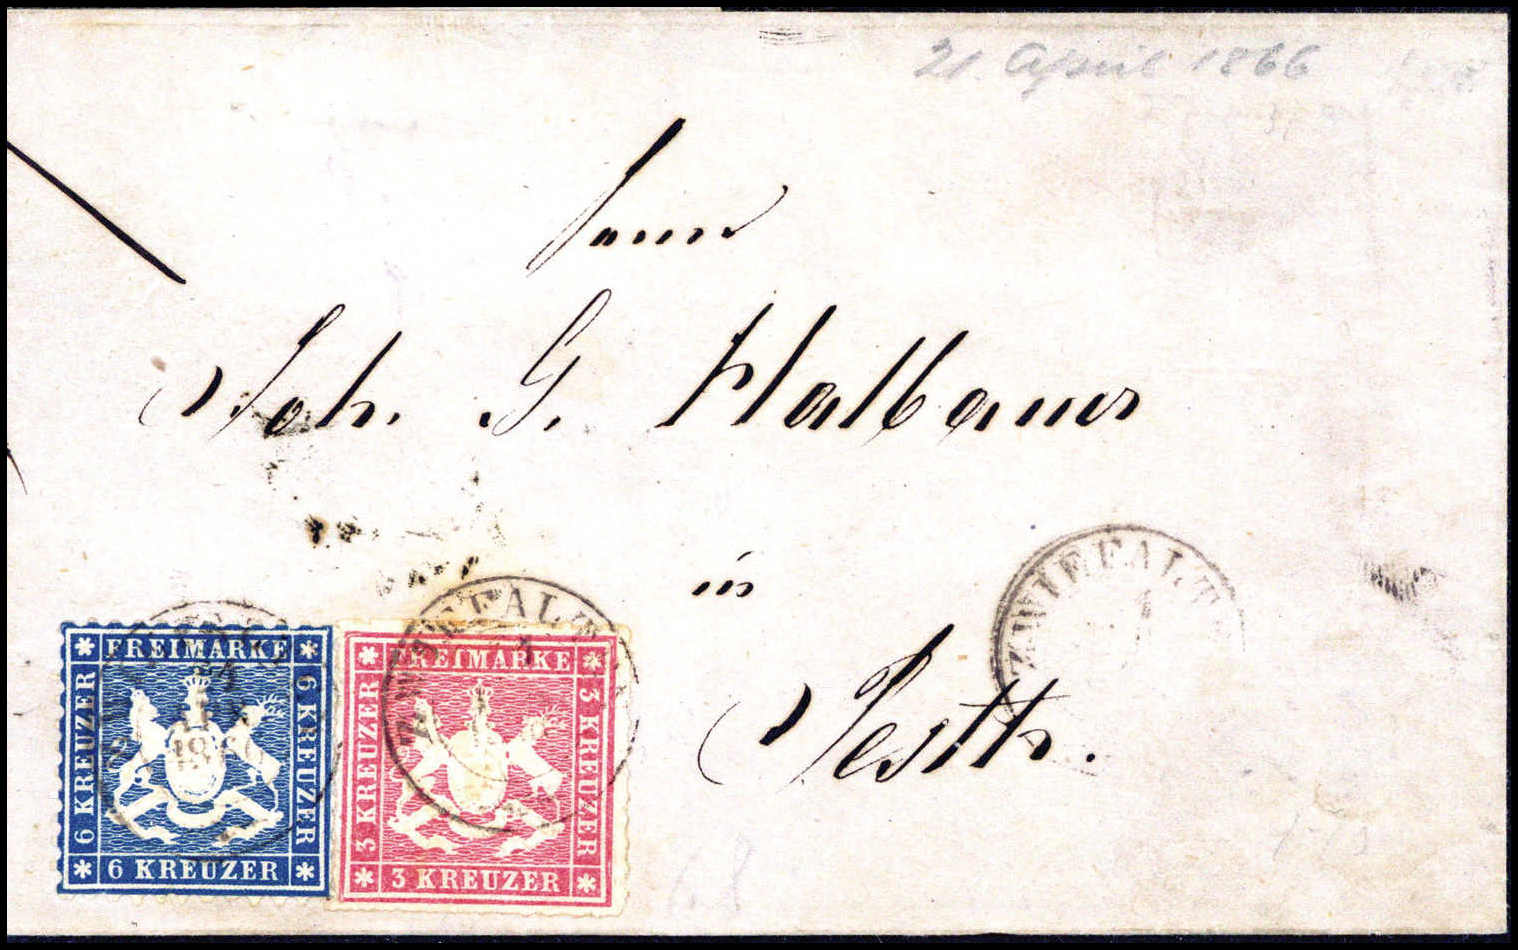 21. April 1866
Herrn
Joh. G. Halbauer
in
Pesth.
ZWIEFALT
FREIMARKE
6 KREUZER
6 KREUZER
6 KREUZER
ZWIEFALT
FREIMARKE
3 KREUZER
3 KREUZER
3 KREUZER